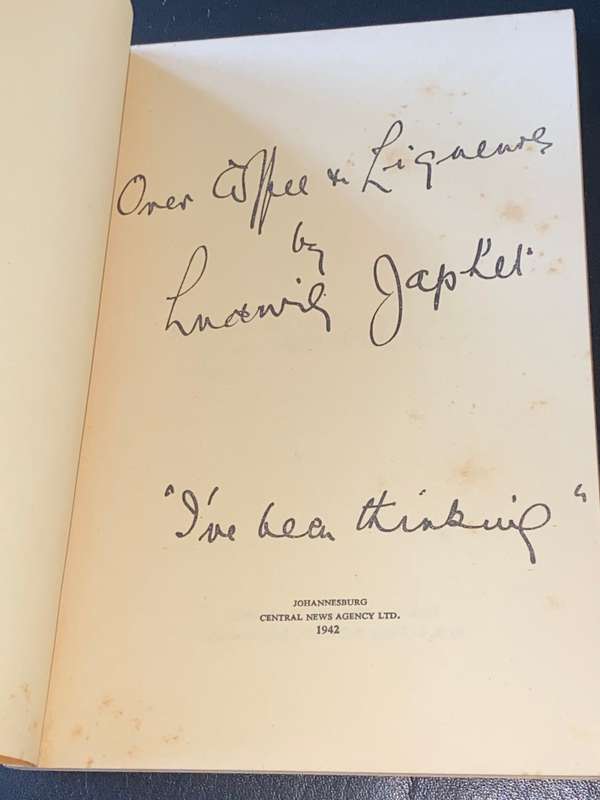 Over Coffee & Liqueurs
by
Ludwig Japhet.
"I've been thinking"
JOHANNESBURG
CENTRAL NEWS AGENCY LTD.
1942